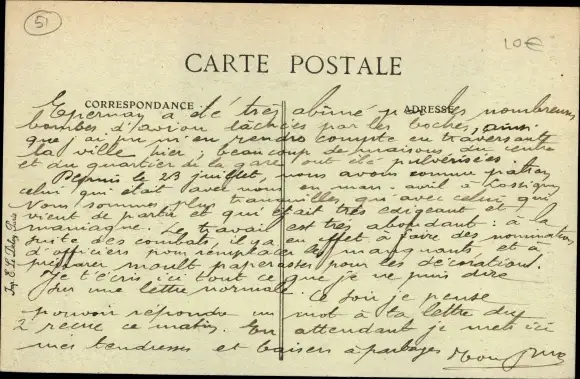 51
10€
CARTE POSTALE
CORRESPONDANCE
ADRESSE
Epernay a été très abîmé par les nombreuses
bombes d'avion lachées par les boches, ainsi
que j'ai pu m'en rendre compte en traversant
la ville hier; beaucoup de maisons du centre
et du quartier de la gare ont été pulvérisées.
Depuis le 23 juillet, nous avons comme patron
celui qui était avec nous en mars-avril à Rossigny
Nous sommes plus tranquilles qu'avec celui qui
vient de partir et qui était très exigeant et
maniaque. Le travail est très abondant; à la
suite des combats, il y a en effet à faire des nominations
d'officiers pour remplacer les manquants et à
préparer moult paperasses pour les décorations.
Je t'écris ici tout ce que je ne puis dire
sur une lettre normale. Ce soir je pense
pouvoir répondre un mot à ta lettre du
2 reçue ce matin. En attendant je mets ici
mes tendresses et baisers à partager
Imp. E. Le Deley, Paris